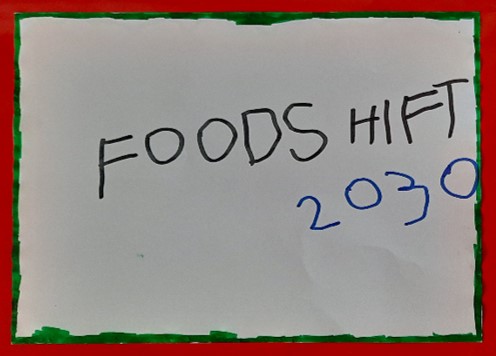 FOODSHIFT
2030